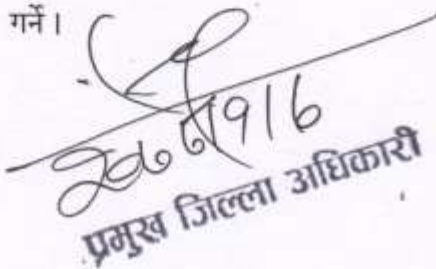 गर्ने।
प्रमुख जिल्ला अधिकारी